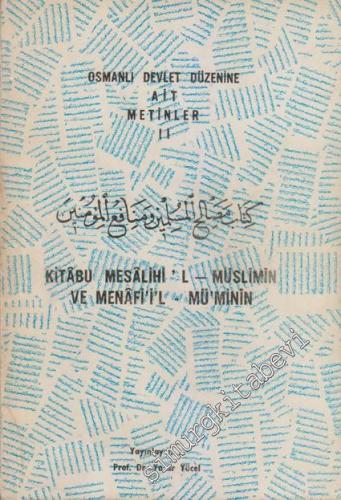 OSMANLI DEVLET DÜZENİNE
AİT
METİNLER
II
كتاب مصالح المسلمين ومنافع المؤمنين
KİTÂBU MESÂLİHİ'L — MÜSLİMÎN
VE MENÂFİ'İ'L - MÜ'MİNÎN
Yayınlayan
Prof. Dr. Yaşar Yücel
simurgkitabevi